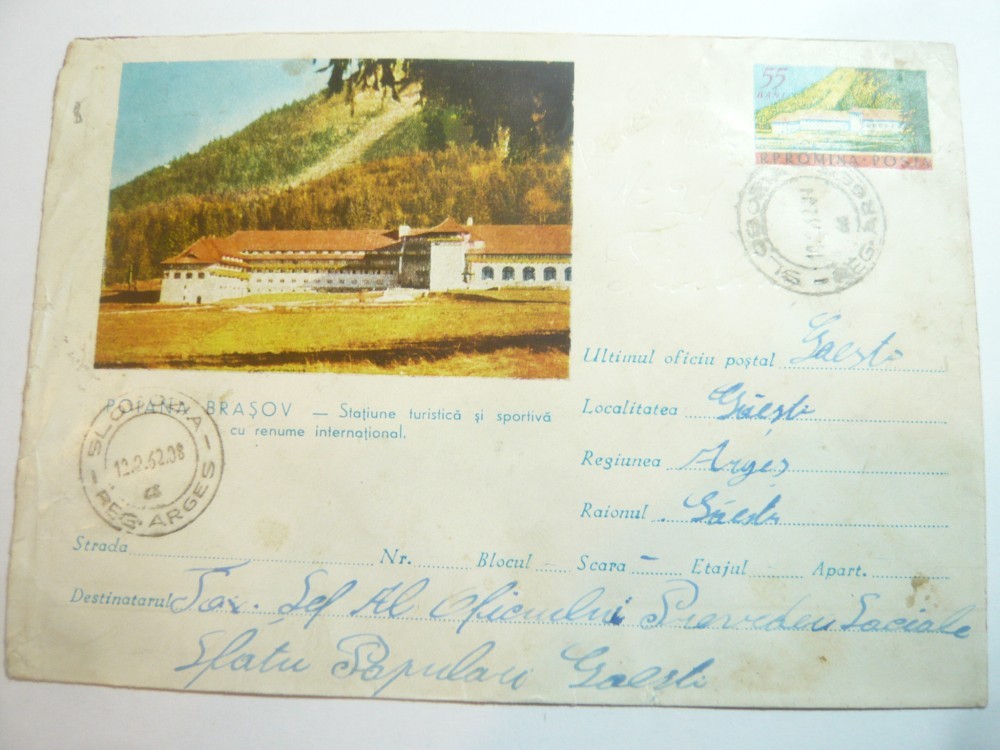 8
55
BANI
R.P.ROMINA • POSTA
SLOBOZIA
REG. ARGES
POIANA BRAȘOV — Stațiune turistică și sportivă
cu renume internațional.
12.2.62.08
REG ARGES
Ultimul oficiu poștal Gaesti
Localitatea Găești
Regiunea Argeș
Raionul Găesti
Strada Nr. Blocul — Scara — Etajul Apart.
Destinatarul Tov. Șef Al Oficiului Prevederi Sociale
Sfatu Popular Gaesti